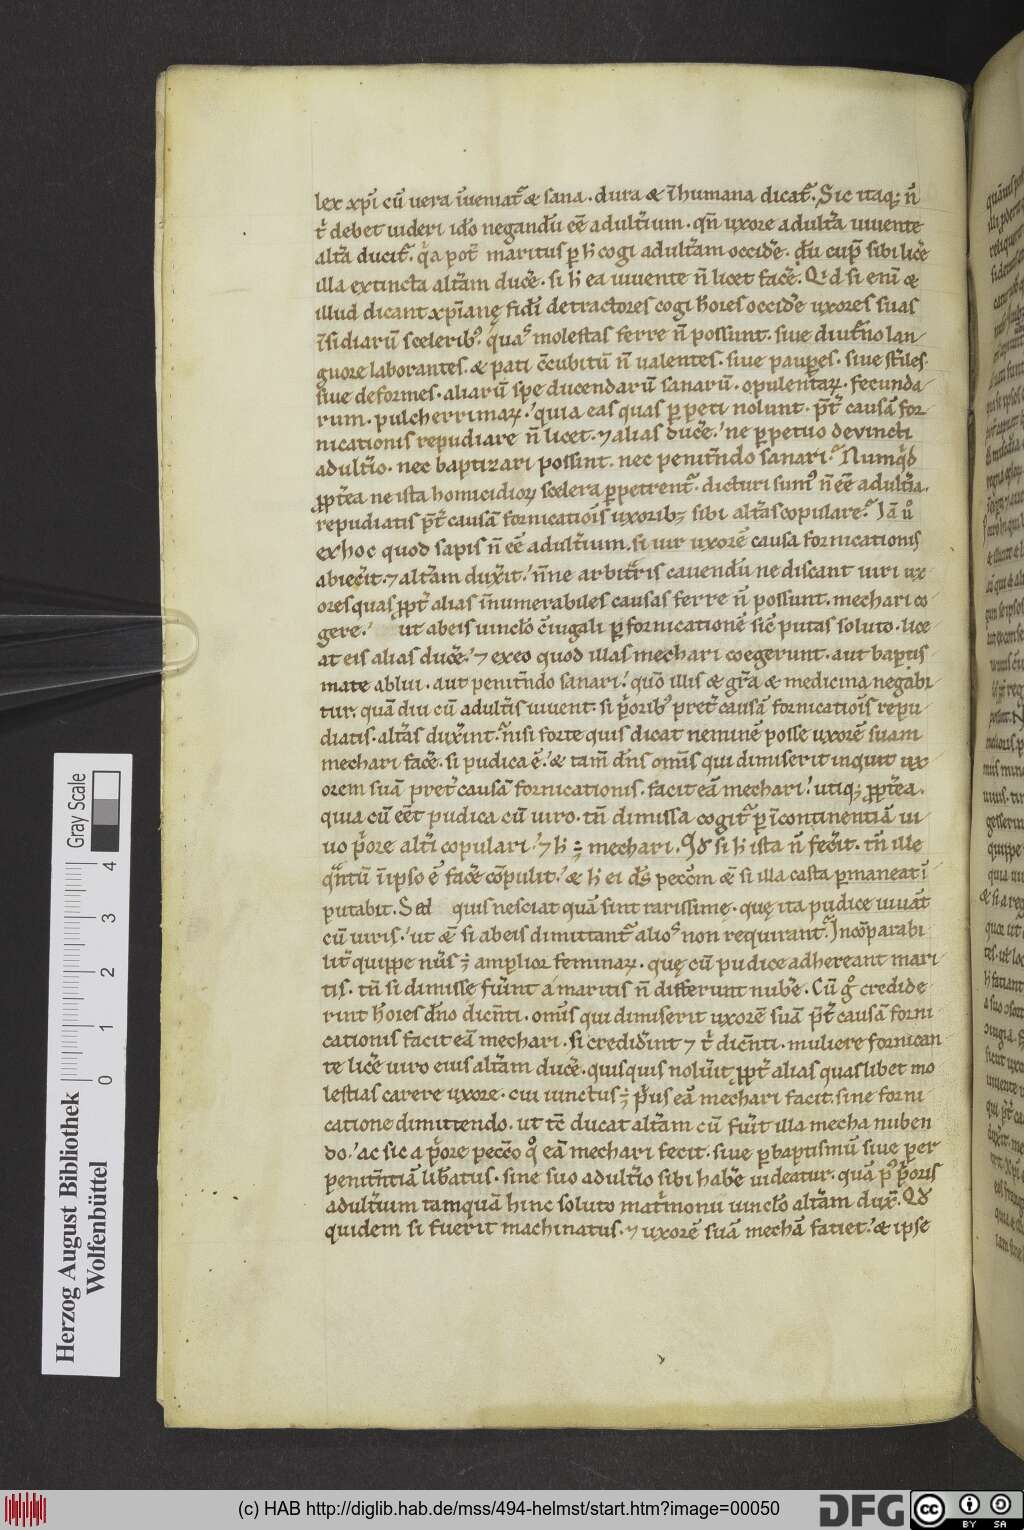 lex xp̄i cū uera īueniat᷑ & sana · dura & īhumana dicat᷑. Sic itaq; n̄
t͛ debet uideri id̄o negandū eē adult͛ium · qn̄ uxore adult͛a uiuente
alt͛a ducit᷑. q͛a pot̄ maritus ꝑ h̄ cogi adult͛am occid͛e · dū cup̄ sibi lic͛e
illa extincta alt͛am duc͛e · si h̄ ea uiuente n̄ licet fac͛e. Qd si enī &
illud dicant xp̄ianę fid̄i detractores cogi hōies occid͛e uxores suas
īsidiarū scelerib; · quas molestas ferre n̄ possunt · siue diut͛no lan-
guore laborantes · & pati c̄cubitū n̄ ualentes · siue pauꝑes · siue st͛iles ·
siue deformes · aliarū spe ducendarū sanarū · opulentaꝝ · fecunda-
rum · pulcherrimaꝝ · quia eas quas ꝑpeti nolunt · p̄t͛ causā for-
nicationis repudiare n̄ licet · ⁊ alias duc͛e · ne ꝑpetuo devincti
adult͛io · nec baptizari possint · nec penit̄ndo sanari. Numqd
ꝓpt͛ea ne ista homicidioꝝ scelera ꝑpetrent᷑ · dicturi sumꝰ n̄ eē adult͛ia ·
repudiatis p̄t͛ causā fornicatiōis uxorib; sibi alt͛as copulare. Iā ū
ex hoc quod sapis n̄ eē adult͛ium · si uir uxorē causa fornicationis
abiec͛it · ⁊ alt͛am dux͛it · n̄ne arbit͛ris cauendū ne discant uiri ux-
ores quas ꝓpt͛ alias īnumerabiles causas ferre n̄ possunt · mechari co-
gere · ut ab eis uinclō c̄iugali ꝑ fornicationē sic̄ putas soluto · lice-
at eis alias duc͛e · ⁊ ex eo quod illas mechari coegerunt · aut baptis-
mate ablui · aut penit̄ndo sanari. quō illis & gr̄a & medicina negabi-
tur · quādiu cū adult͛is uiuent · si p͛orib; pret͛ causā fornicatiōis repu-
diatis · alt͛as dux͛int. nisi forte quis dicat neminē posse uxorē suam
mechari fac͛e · si pudica ē · & tam̄ dn̄s omīs qui dimiserit inquit ux-
orem suā pret͛ causā fornicationis · facit eā mechari. utiq; ꝓpt͛ea ·
quia cū eēt pudica cū uiro · tn̄ dimissa cogit᷑ ꝑ īcontinentiā ui-
uo p͛ore alt͛i copulari · ⁊ h̄ ÷ mechari. Qd si h̄ ista n̄ fec͛it · tn̄ ille
qntū ī ipso ē fac͛e cōpulit · & h̄ ei ds̄ pecc̄m &̄ si illa casta ꝑmaneat ī-
putabit. Sed quis nesciat quā sint rarissimę · quę ita pudice uiuāt
cū uiris · ut &̄ si ab eis dimittant᷑ alios non requirant᷑. Incōparabi-
lit͛ quippe nūs ÷ amplior feminaꝝ · quę cū pudice adhereant mari-
tis · tn̄ si dimisse fu͛int a maritis n̄ differunt nub͛e. Cū g͛ credide-
rint hōies dn̄o dicn̄ti · omīs qui dimiserit uxorē suā p̄t͛ causā forni-
cationis facit eā mechari · si credid͛int ⁊ t͛ dicn̄ti · muliere fornican-
te lic͛e uiro eius alt͛am duc͛e · quisquis nolu͛it ꝓpt͛ alias quaslibet mo-
lestias carere uxore · cui iunctus ÷ p͛us eā mechari facit · sine forni-
catione dimittendo · ut tc̄ ducat alt͛am cū fu͛it illa mecha nuben-
do · ac sic a p͛ore pecc̄o q͛ eā mechari fecit · siue ꝑ baptismū siue per
penitn̄tiā lib͛atus · sine suo adult͛io sibi hab͛e uideatur · quā pꝰ p͛oris
adult͛ium tamquā hinc soluto mat͛monii uinclō alt͛am dux͛. Qd
quidem si fuerit machinatus · ⁊ uxorē suā mechā faciet · & ipse
Herzog August Bibliothek
Wolfenbüttel
0 1 2 3 4
Gray Scale
(c) HAB http://diglib.hab.de/mss/494-helmst/start.htm?image=00050
DFG
cc BY SA